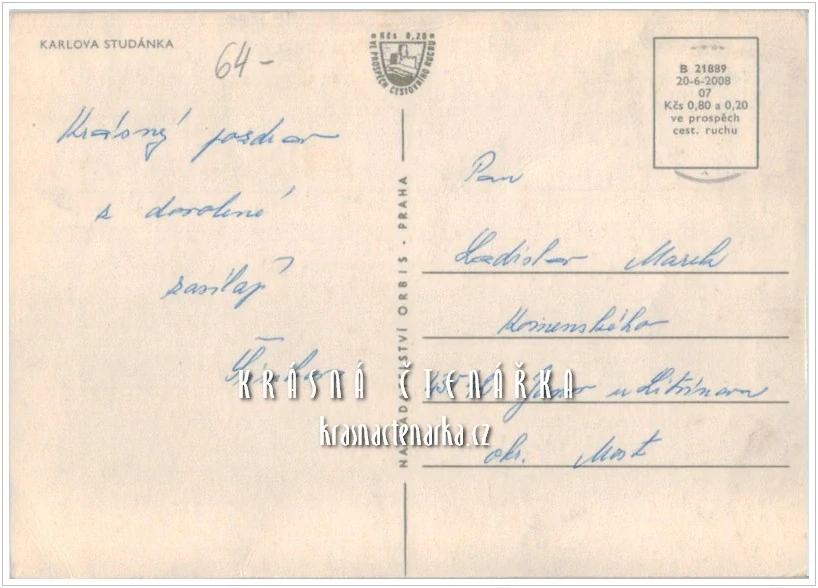 KARLOVA STUDÁNKA
64-
Kčs 0,20
VE PROSPĚCH CESTOVNÍHO RUCHU
B 21889
20-6-2008
07
Kčs 0,80 a 0,20
ve prospěch
cest. ruchu
Krásný pozdrav
z dovolené
zasílají
NAKLADATELSTVÍ ORBIS - PRAHA
Pan
Ladislav Marek
Komenského
Janov u Litvínova
okr. Most
KRÁSNÁ ČTENÁŘKA
krasnactenarka.cz